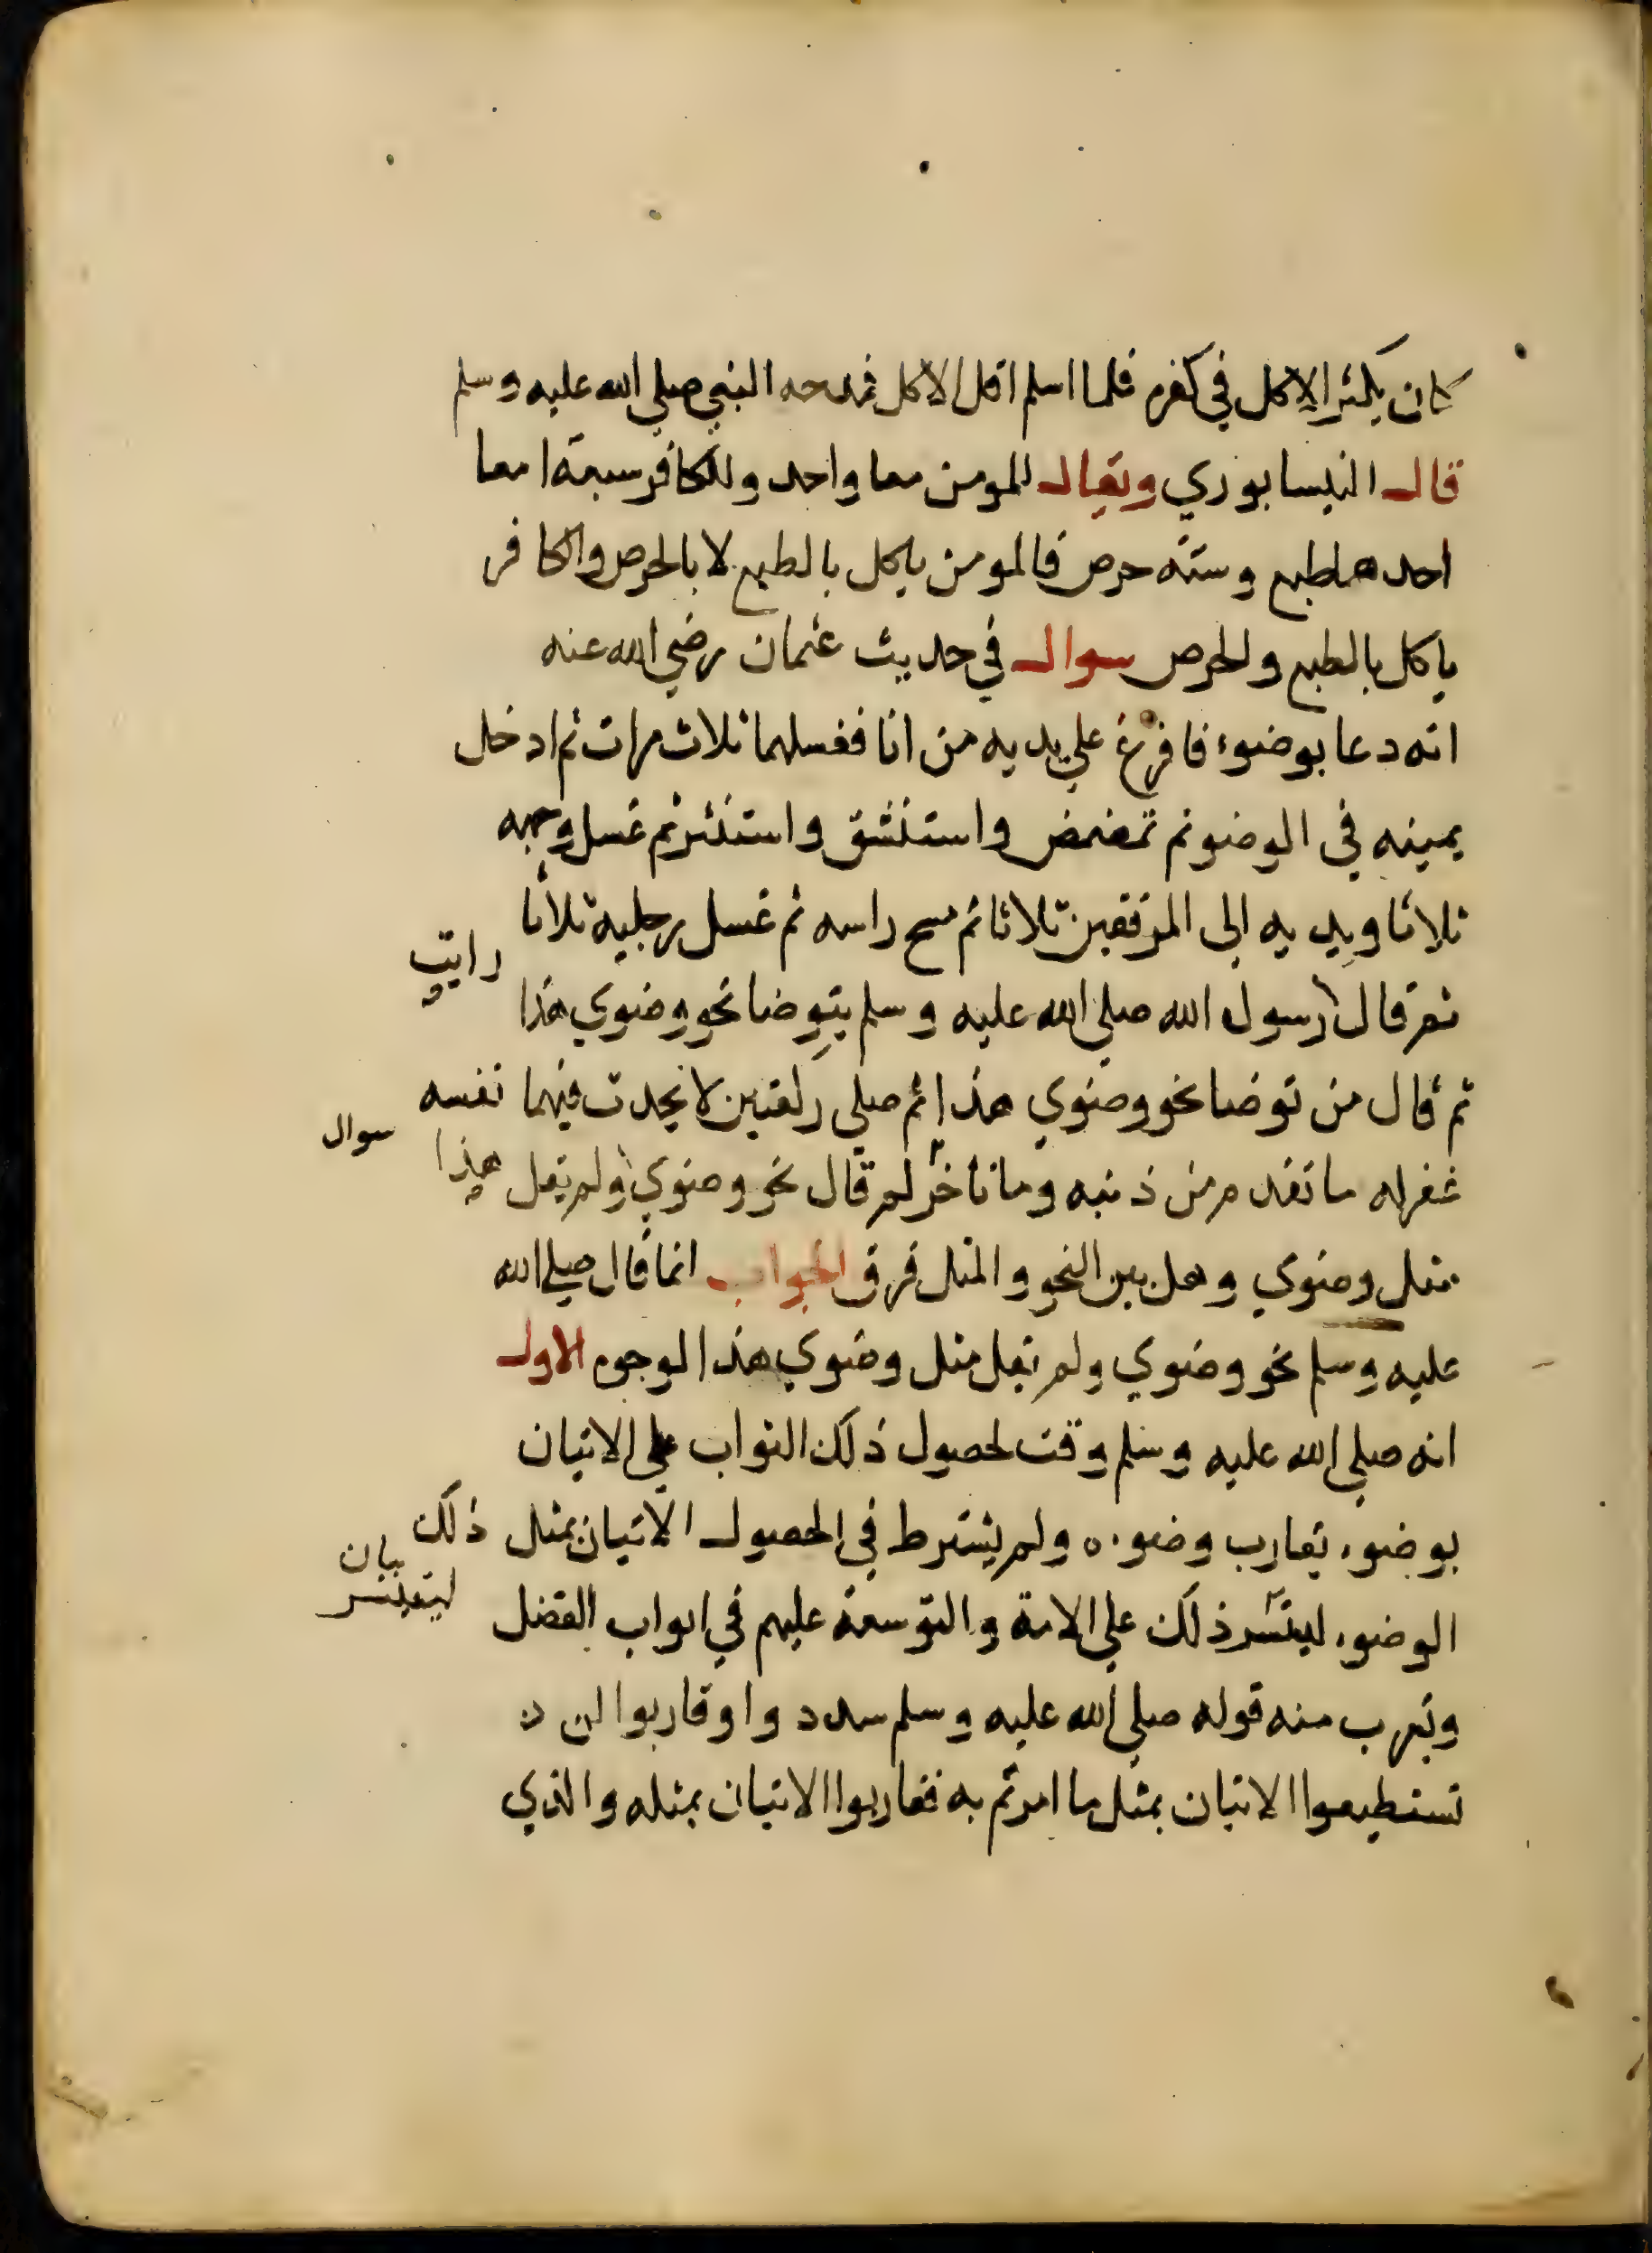 كان يكثر الاكل في كفره فلما اسلم اقل الاكل فمدحه النبي صلي الله عليه وسلم
قال النيسابوري ويقال للمومن معا واحد وللكافر سبعة امعا
احدهما طبع وستة حرص فالمومن ياكل بالطبع لا بالحرص والكافر
ياكل بالطبع والحرص سوال في حديث عثمان رضي الله عنه
انه دعا بوضوء فافرغ علي يديه من انا فغسلهما ثلاث مرات ثم ادخل
يمينه في الوضو ثم تمضمض واستنشق واستنثر ثم غسل وجهه
ثلاثا ويديه الي المرفقين ثلاثا ثم مسح راسه ثم غسل رجليه ثلاثا
رايت
ثم قال رسول الله صلي الله عليه وسلم يتوضا نحو وضوي هذا
ثم قال من توضا نحو وضوي هذا ثم صلي ركعتين لا يحدث فيهما نفسه
سوال
غفر له ما تقدم من ذنبه وما تاخر لم قال نحو وضوي ولم يقل هذا
مثل وضوي وهل بين النحو والمثل فرق الجواب انما قال صلي الله
عليه وسلم نحو وضوي ولم يقل مثل وضوي هذا لوجوه الاول
انه صلي الله عليه وسلم وقت لحصول ذلك الثواب علي الاتيان
بوضوء يقارب وضوءه ولم يشترط في الحصول الاتيان بمثل ذلك
بيان
ليتيسر
الوضوء ليتسر ذلك علي الامة والتوسعة عليهم في ابواب الفضل
ويقرب منه قوله صلي الله عليه وسلم سددوا وقاربوا ان
تستطيعوا الاتيان بمثل ما امرتم به فقاربوا الاتيان بمثله والذي